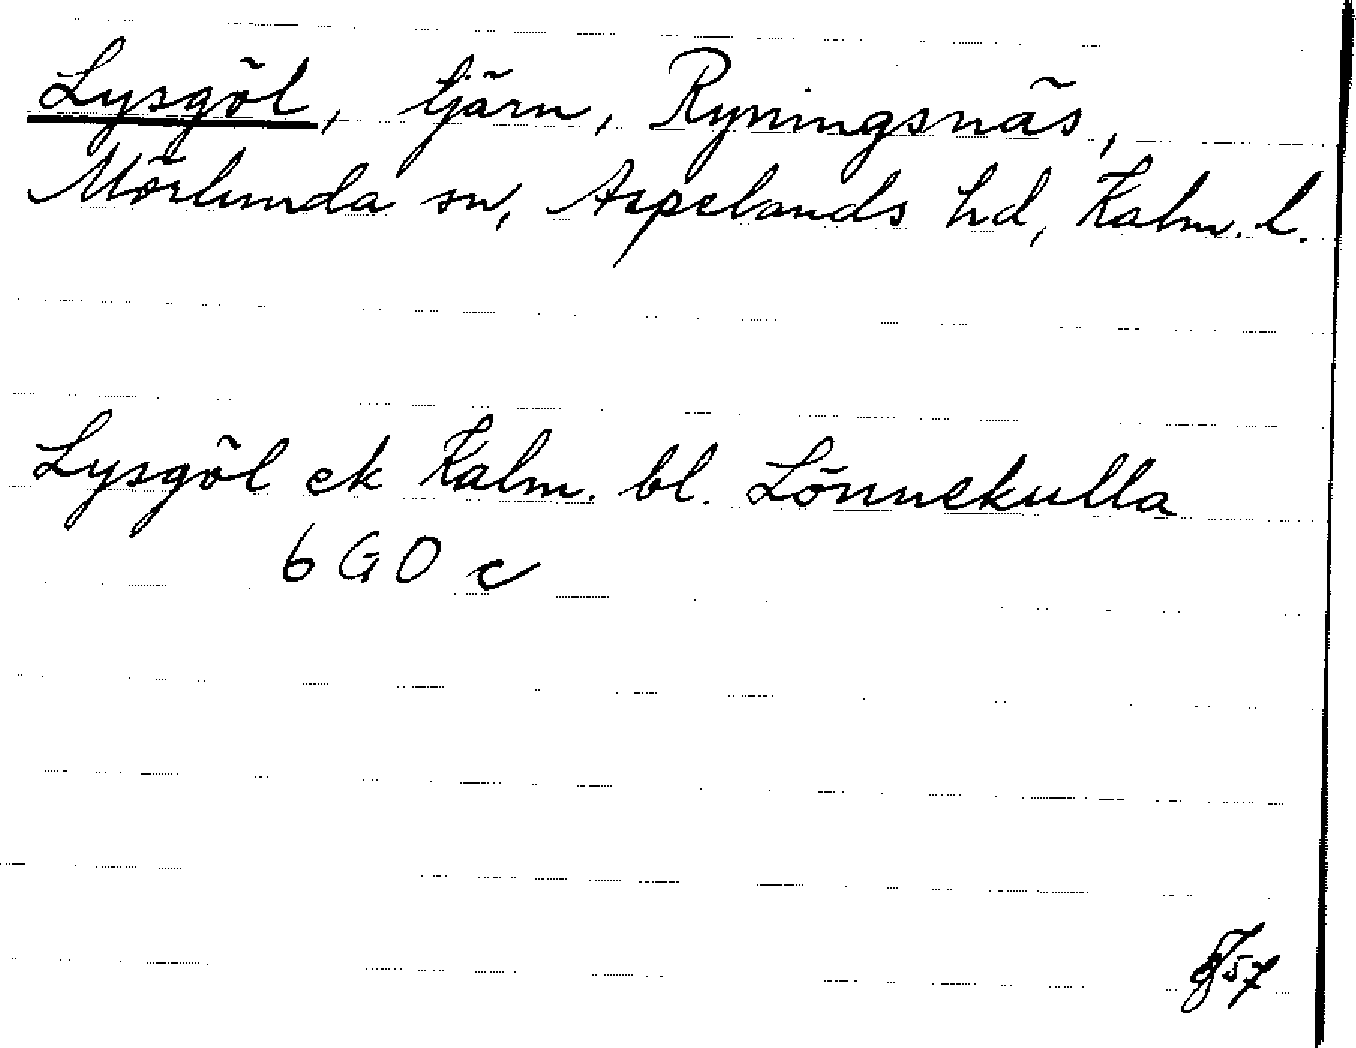 Lysgöl, tjärn, Ryningsnäs,
Mörlunda sn, Aspelands hd, Kalm. l.
Lysgöl ek Kalm. bl. Lönnekulla
6 G 0 c
57